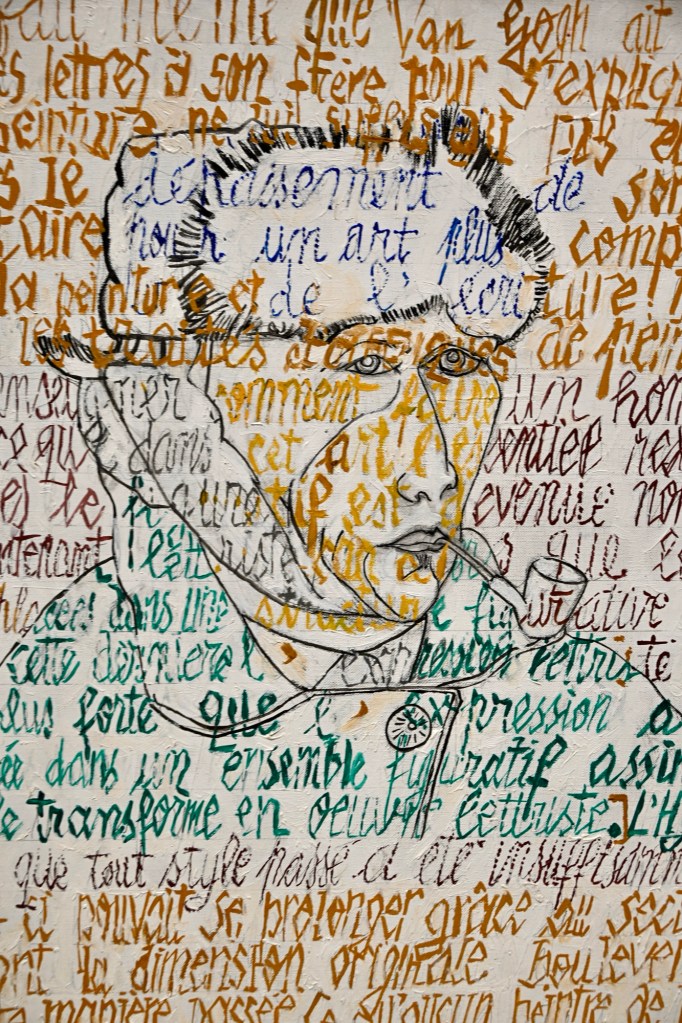 fait même que Van Gogh ait
lettres à son frère pour s'expliqu
peinture ne lui
le dépassement de son
pour un art plus comp
la peinture et de l'écriture!
les de pein
enseigner comment faire un hom
ce qui dans cet art essentiel
le figuratif est devenue non
intenant lettriste que
placées dans une structure figurative
cette dernière l' expression lettriste
plus forte que l'expression a
ée dans un ensemble figuratif assim
e transforme en oeuvre lettriste.] L'H
que tout style passé a été insuffisamm
et pouvait se prolonger grâce au
ont la dimension originale boulever
la manière passée peintre de